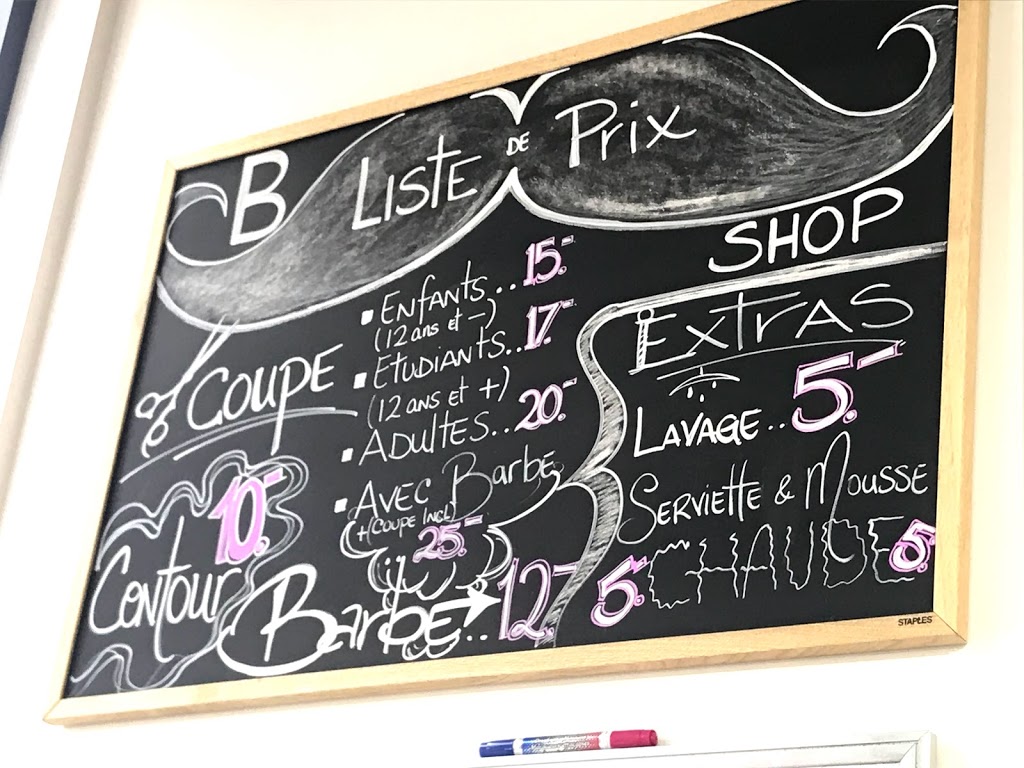 B LISTE DE Prix
SHOP
COUPE
ENFANTS.. 15.-
(12 ans et -)
ETUDIANTS.. 17.-
(12 ans et +)
ADULTES.. 20.-
AVEC Barbe
(+COUPE INCL)
25.-
Contour
10.-
Barbe.. 12.-
EXTRAS
LAVAGE.. 5.-
SERVIETTE & MOUSSE
5.- CHAUDE 5.-
STAPLES